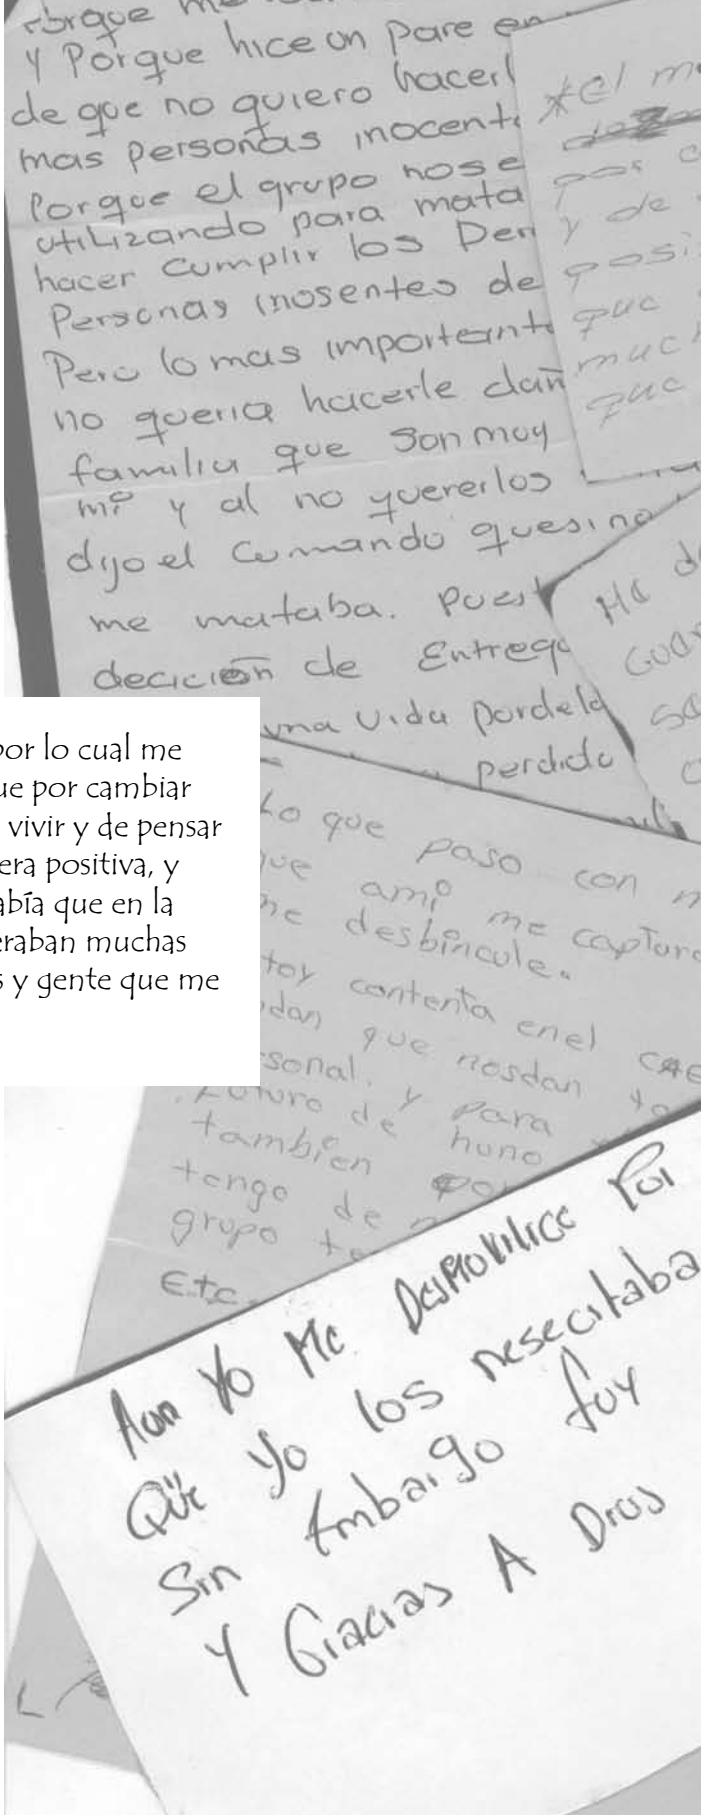 Porque me
Y Porque hice un pare en
de que no quiero hacerl
mas personas inocent
Porque el grupo nos e
utilizando para mata
hacer cumplir los Der
Personas inosentes de
Pero lo mas important
no queria hacerle dañ
familia que son muy
mi y al no quererlos
dijo el Comando que si no
me mataba. Pues t
decición de Entrega
una vida por de la
perdido
*el m
pas c
y de
posi
que
much
que
Ha d
Guar
sa
c
por lo cual me
ue por cambiar
vivir y de pensar
era positiva, y
abía que en la
eraban muchas
s y gente que me
Lo que paso con m
que ami me captura
ne desbincule.
toy contenta en el CAE
dan que nos dan to
sonal. y para
Futuro de huno
tambien por
tengo de m
grupo te
Etc.
Aun Yo Me Desmovilice Por
Que Yo los nesecitaba
Sin Embargo fuy
Y Gracias A Dios